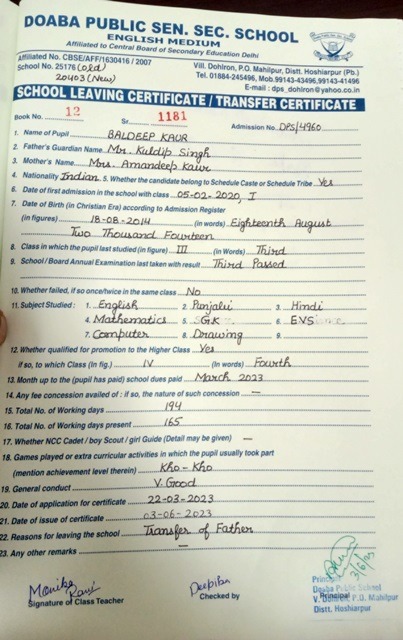 DOABA PUBLIC SEN. SEC. SCHOOL
ENGLISH MEDIUM
Affiliated to Central Board of Secondary Education Delhi
Affiliated No. CBSE/AFF/1630416 / 2007
School No. 25176 (old)
20403 (New)
Vill. Dohiron, P.O. Mahilpur, Distt. Hoshiarpur (Pb.)
Tel. 01884-245496, Mob.99143-43496,99143-41496
E-mail : dps_dohiron@yahoo.co.in
SCHOOL LEAVING CERTIFICATE / TRANSFER CERTIFICATE
Book No. 12 Sr. 1181 Admission No. DPS/4960
1. Name of Pupil BALDEEP KAUR
2. Father's Guardian Name Mr. Kuldip Singh
3. Mother's Name Mrs. Amandeep Kaur
4. Nationality Indian 5. Whether the candidate belong to Schedule Caste or Schedule Tribe Yes
6. Date of first admission in the school with class 05-02-2020, I
7. Date of Birth (in Christian Era) according to Admission Register
(in figures) 18-08-2014 (in words) Eighteenth August
Two Thousand Fourteen
8. Class in which the pupil last studied (in figure) III (in Words) Third
9. School / Board Annual Examination last taken with result Third Passed
10. Whether failed, if so once/twice in the same class No
11. Subject Studied : 1. English 2. Punjabi 3. Hindi
4. Mathematics 5. G.K 6. EVS
7. Computer 8. Drawing 9.
12. Whether qualified for promotion to the Higher Class Yes
if so, to which Class (In fig.) IV (In words) Fourth
13. Month up to the (pupil has paid) school dues paid March 2023
14. Any fee concession availed of : if so, the nature of such concession —
15. Total No. of Working days 194
16. Total No. of Working days present 165
17. Whether NCC Cadet / boy Scout / girl Guide (Detail may be given) —
18. Games played or extra curricular activities in which the pupil usually took part
(mention achievement level therein) Kho-Kho
19. General conduct V.Good
20. Date of application for certificate 22-03-2023
21. Date of issue of certificate 03-06-2023
22. Reasons for leaving the school Transfer of Father
23. Any other remarks —
Monika Rani
Signature of Class Teacher
Deepika
Checked by
3/6/23
Principal
Principal
Doaba Public School
V. Dohiron, P.O. Mahilpur
Distt. Hoshiarpur